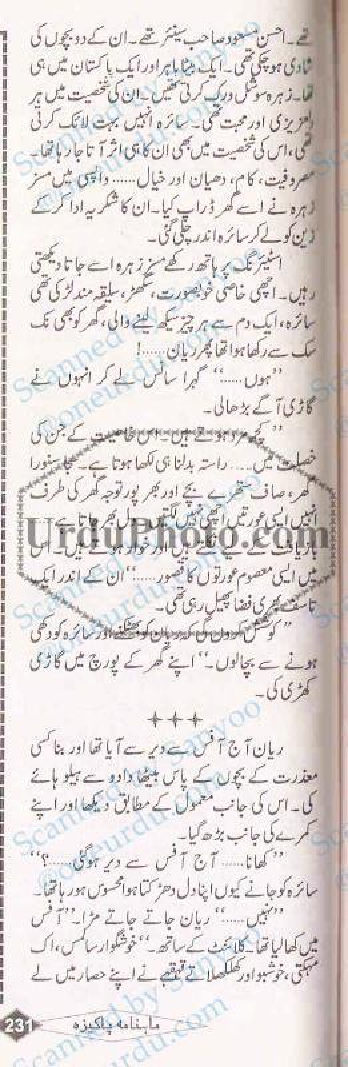 تھے۔ احسن مسعود صاحب سینئر تھے۔ ان کے دو بچوں کی
شادی ہو چکی تھی۔ ایک بیٹا باہر اور ایک پاکستان میں ہی
تھا۔ زہرہ سوشل ورک کرتی تھیں۔ ان کی شخصیت میں ہر
دلعزیزی اور محبت تھی۔ سائرہ انہیں بہت لائک کرتی
تھی، اس کی شخصیت میں بھی ان کا ہی اثر آتا جا رہا تھا۔
مصروفیت، کام، دھیان اور خیال...... واپسی میں مسز
زہرہ نے اسے گھر ڈراپ کیا۔ ان کا شکریہ ادا کر کے
زین کو لے کر سائرہ اندر چلی گئی۔
اسٹیئرنگ پر ہاتھ رکھے مسز زہرہ اسے جاتا دیکھتی
رہیں۔ اچھی خاصی خوبصورت، سگھڑ، سلیقہ مند لڑکی تھی
سائرہ، ایک دم سے ہر چیز سیکھ لینے والی، گھر کو بھی نک
سک سے رکھا ہوا تھا پھر ریان......!
”ہوں......“ گہرا سانس لے کر انہوں نے
گاڑی آگے بڑھا لی۔
”کچھ مرد ہوتے ہیں۔ اس خاصیت کے جن کی
خصلت میں..... راستہ بدلنا ہی لکھا ہوتا ہے۔ سجا سنورا
گھر، صاف ستھرے بچے اور بھرپور توجہ گھر کی طرف
انہیں ایسی عورتیں اچھی نہیں لگتیں، دل بھر جاتا ہے
ہیں اور خوار ہوتے ہیں۔ اس
میں ایسی معصوم عورتوں کا قصور......“ ان کے اندر ایک
تاسف بھری فضا پھیل رہی تھی۔
”کوشش کروں گی کہ ریان کو بھٹکنے اور سائرہ کو دکھی
ہونے سے بچا لوں۔“ اپنے گھر کے پورچ میں گاڑی
کھڑی کی۔
✦✦✦
ریان آج آفس سے دیر سے آیا تھا اور بنا کسی
معذرت کے بچوں کے پاس بیٹھا دادو سے ہیلو ہائے
کی۔ اس کی جانب معمول کے مطابق دیکھا اور اپنے
کمرے کی جانب بڑھ گیا۔
”کھانا...... آج آفس سے دیر ہو گئی......؟“
سائرہ کو جانے کیوں اپنا دل دھڑکتا ہوا محسوس ہو رہا تھا۔
”نہیں......“ ریان جاتے جاتے مڑا۔ ”آفس
میں کھا لیا تھا۔ کلائنٹ کے ساتھ۔“ خوشگوار سا لمس، اک
مہکتی، خوشبو اور کھلکھلاتے قہقہے نے اپنے حصار میں لے
231 ماہنامہ پاکیزہ
UrduPhoto.com
Scanned by Sanyoo
@oneurdu.com